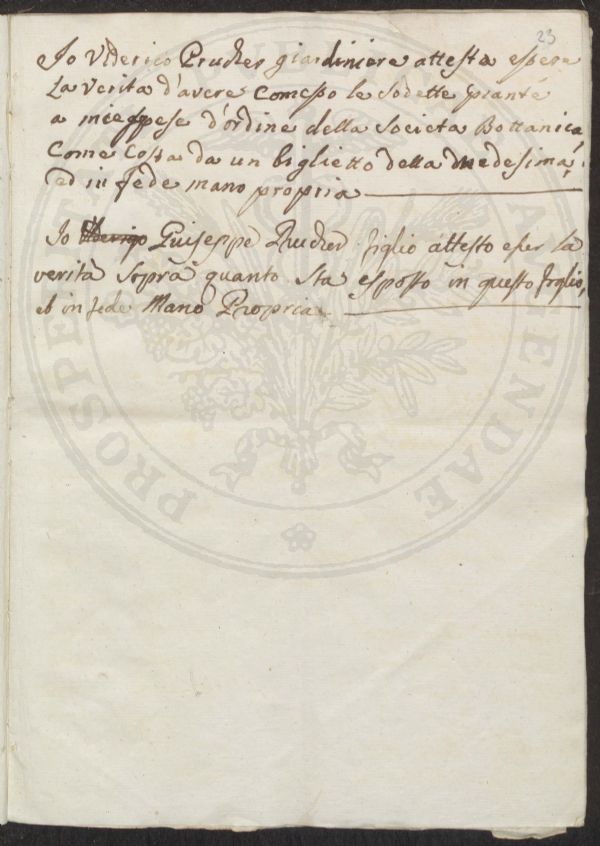 23
Io Vlderico Prucker giardiniere attesta essere
La Verita d'avere Comesso le sodette piante
a mie spese d'ordine della Societa Bottanica,
Come Costa da un biglietto della medesima,
ed in fede mano propria
Io Guiseppe Prucker figlio attesto esser la
verità sopra quanto sta esposto in questo foglio,
et in fede Mano Propria